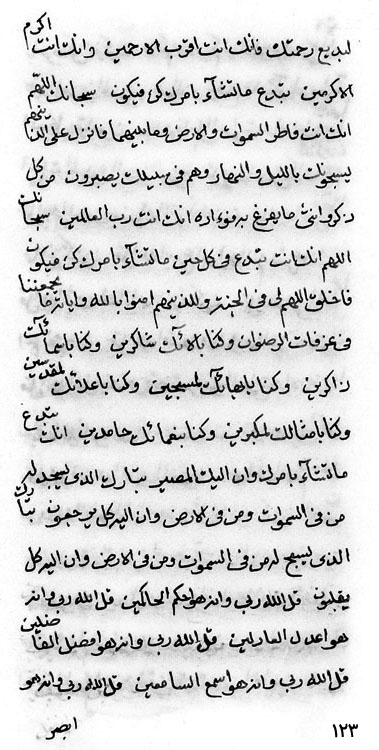 لبديع رحمتك فانك انت اقرب الارحمين وانك انت اكرم
الاكرمين تبدع ماتشآء بامرك كن فيكون سبحانك اللهم
انك انت فاطر السموات والارض ومابينهما فانزل على الذينهم
يسبحونك بالليل والنهار وهم فى سبيلك يصبرون من كل
ذكر وانثى ما يفرغ به فوءاده انك انت رب العالمين سبحانك
اللهم انك انت تبدع فى كل حين ماتشآء بامرك كن فيكون
فاخلق اللهم لى فى الجنة وللذينهم امنوا بالله واياته يجمعننا
فى غرفات الرضوان وكنا بالآئك شاكرين وكنا باسمائك
ذاكرين وكنا بابهائك لمسبحين وكنا باعلائك لمقدسين
وكنا بامثالك لمكبرين وكنا بنعمائك حامدين انك تبدع
ماتشآء بامرك وان اليك المصير تبارك الذى يسجد له
من فى السموات ومن فى الارض وان اليه كل يرجعون تبارك
الذى يسبح له من فى السموات ومن فى الارض وان اليه كل
يقلبون قل الله ربى وانه هو احكم الحاكمين قل الله ربى وانه
هو اعدل العادلين قل الله ربى وانه هو افضل الفاضلين
قل الله ربى وانه هو اسمع السامعين قل الله ربى وانه هو
ابصر
١٢٣